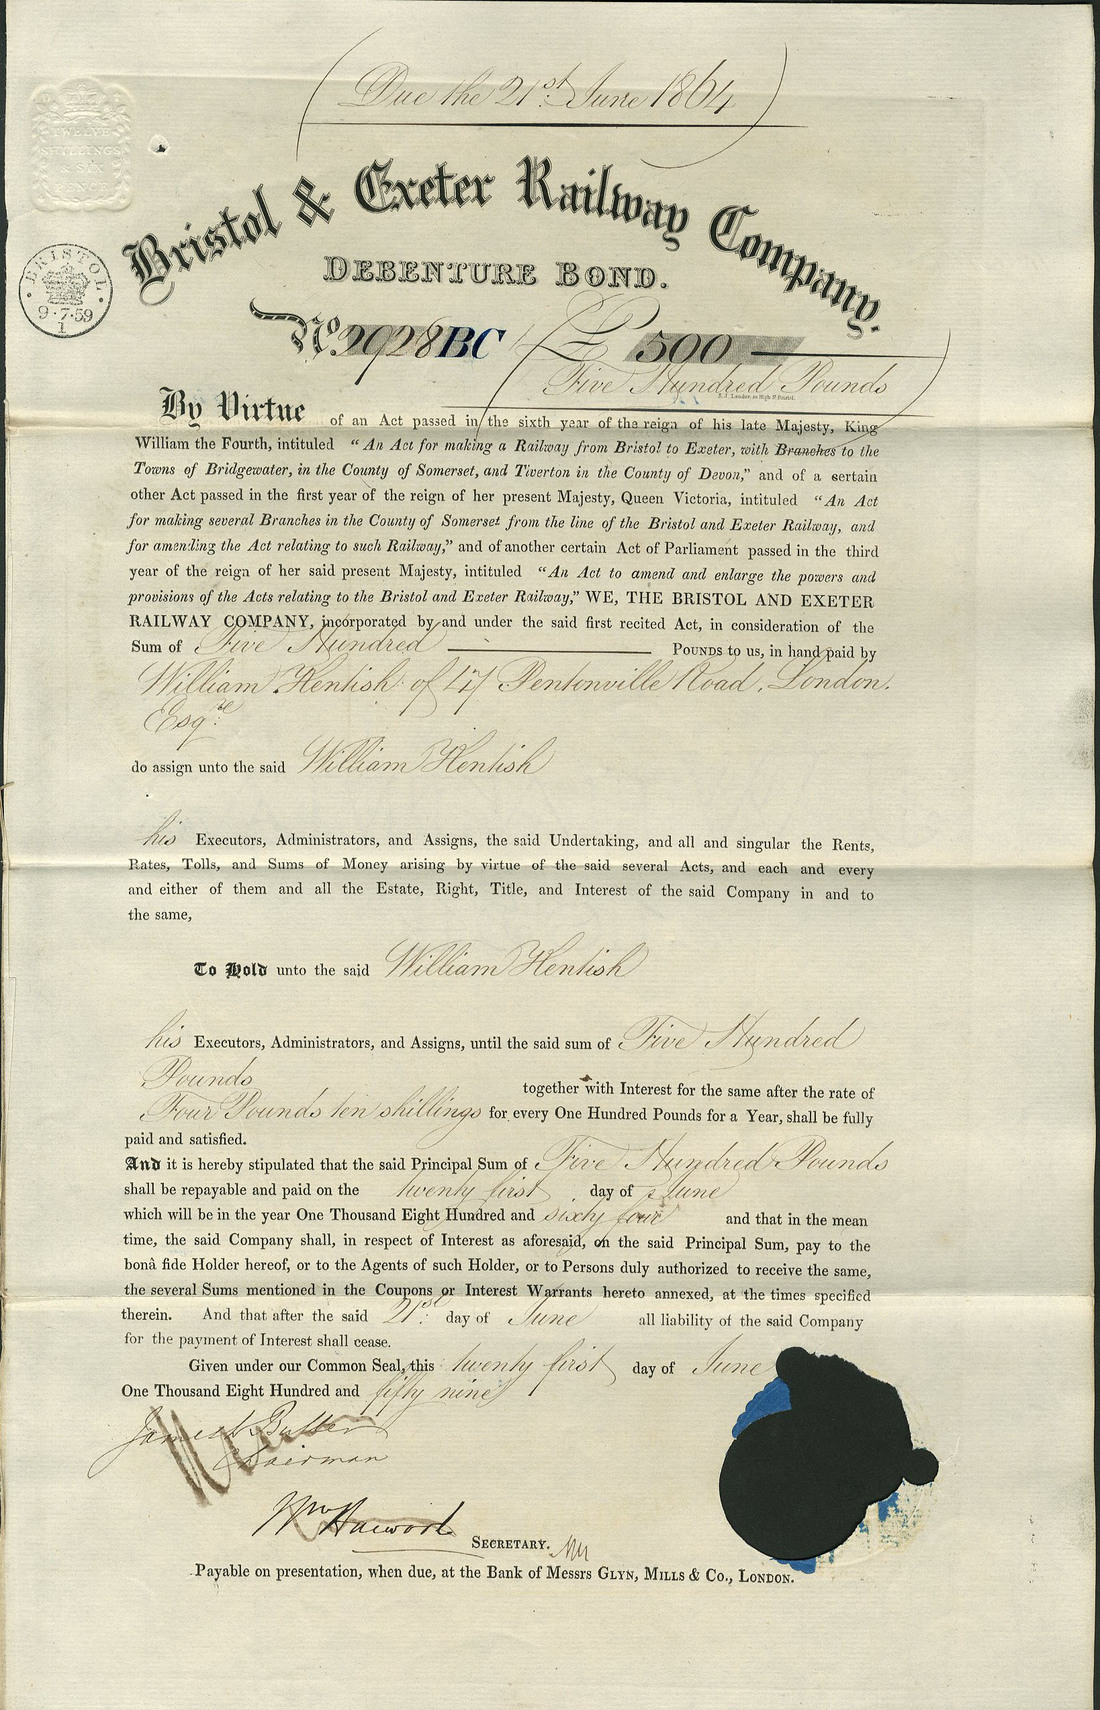 Due the 21st. June 1864
TWELVE
SHILLINGS
& SIX
PENCE
Bristol & Exeter Railway Company.
BRISTOL
9·7·59
1
DEBENTURE BOND.
No. 2928 BC £ 500
Five Hundred Pounds
By Virtue of an Act passed in the sixth year of the reign of his late Majesty, King
William the Fourth, intituled "An Act for making a Railway from Bristol to Exeter, with Branches to the
Towns of Bridgewater, in the County of Somerset, and Tiverton in the County of Devon," and of a certain
other Act passed in the first year of the reign of her present Majesty, Queen Victoria, intituled "An Act
for making several Branches in the County of Somerset from the line of the Bristol and Exeter Railway, and
for amending the Act relating to such Railway," and of another certain Act of Parliament passed in the third
year of the reign of her said present Majesty, intituled "An Act to amend and enlarge the powers and
provisions of the Acts relating to the Bristol and Exeter Railway," WE, THE BRISTOL AND EXETER
RAILWAY COMPANY, incorporated by and under the said first recited Act, in consideration of the
Sum of Five Hundred POUNDS to us, in hand paid by
William Kentish of 47 Pentonville Road, London.
Esqre.
do assign unto the said William Kentish
his Executors, Administrators, and Assigns, the said Undertaking, and all and singular the Rents,
Rates, Tolls, and Sums of Money arising by virtue of the said several Acts, and each and every
and either of them and all the Estate, Right, Title, and Interest of the said Company in and to
the same,
To Hold unto the said William Kentish
his Executors, Administrators, and Assigns, until the said sum of Five Hundred
Pounds together with Interest for the same after the rate of
Four Pounds ten shillings for every One Hundred Pounds for a Year, shall be fully
paid and satisfied.
And it is hereby stipulated that the said Principal Sum of Five Hundred Pounds
shall be repayable and paid on the twenty first day of June
which will be in the year One Thousand Eight Hundred and sixty four and that in the mean
time, the said Company shall, in respect of Interest as aforesaid, on the said Principal Sum, pay to the
bonâ fide Holder hereof, or to the Agents of such Holder, or to Persons duly authorized to receive the same,
the several Sums mentioned in the Coupons or Interest Warrants hereto annexed, at the times specified
therein. And that after the said 21st. day of June all liability of the said Company
for the payment of Interest shall cease.
Given under our Common Seal, this twenty first day of June
One Thousand Eight Hundred and fifty nine
Chairman
SECRETARY.
Payable on presentation, when due, at the Bank of Messrs GLYN, MILLS & Co., LONDON.